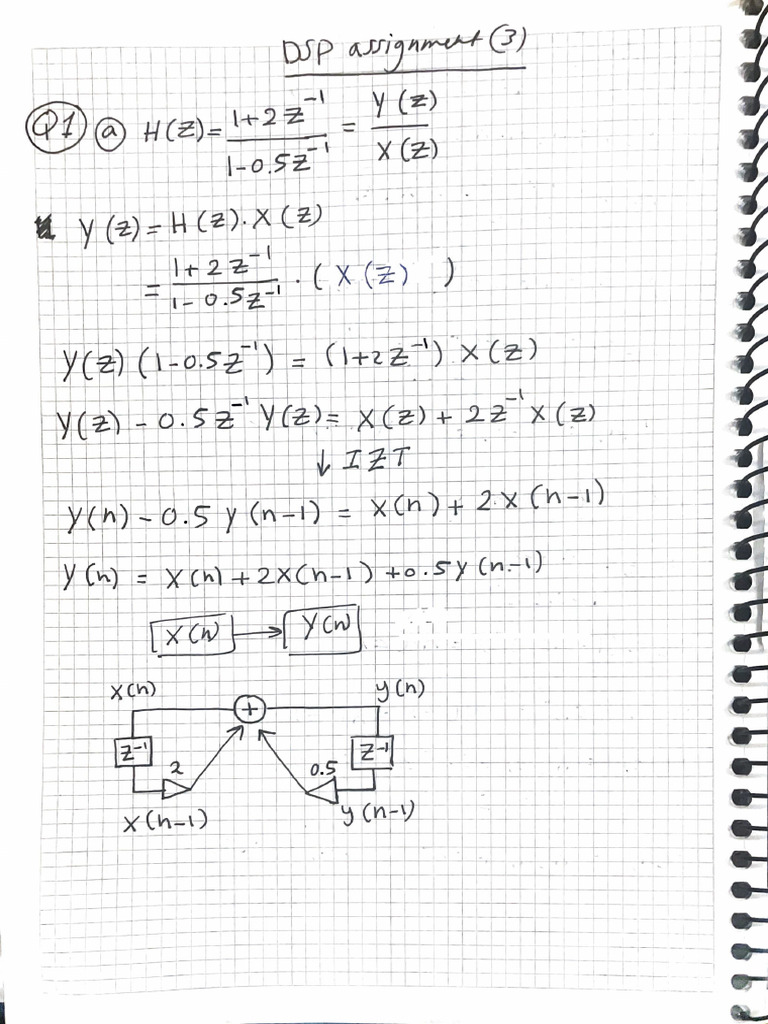 DSP assignment (3)
Q1 (a) H(Z) = (1+2z^-1)/(1-0.5z^-1) = Y(z)/X(z)
Y(z) = H(z). X(z)
= (1+2z^-1)/(1-0.5z^-1) . (X(z))
Y(z) (1-0.5z^-1) = (1+2z^-1) X(z)
Y(z) - 0.5z^-1 Y(z) = X(z) + 2z^-1 X(z)
↓ IZT
Y(n) - 0.5 y(n-1) = X(n) + 2x(n-1)
Y(n) = X(n) + 2X(n-1) + 0.5y(n-1)
X(n) → Y(n)
x(n) + y(n)
z^-1 2 0.5 z^-1
x(n-1) y(n-1)